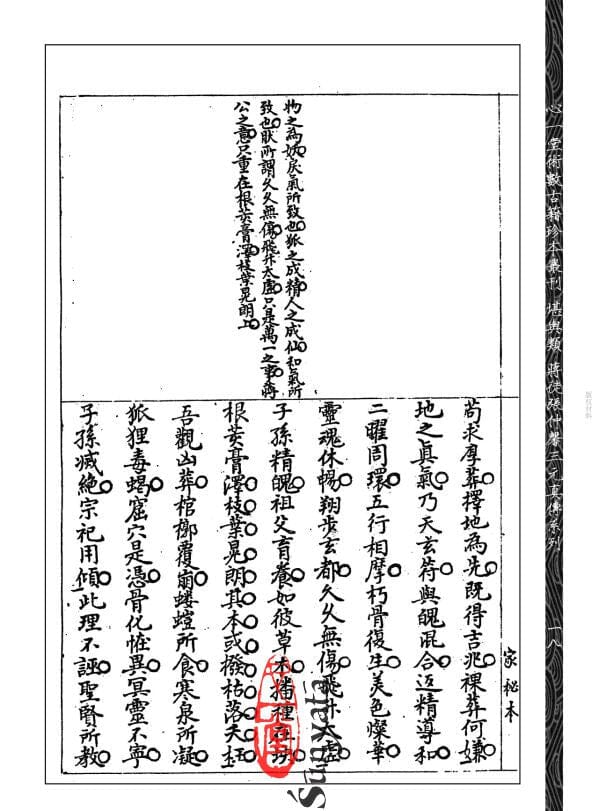 心一堂術數古籍珍本叢刊 堪輿類 蔣徒張仲馨三元真傳系列
一八
版权材料
家秘本
物之為妖戾氣所致也狐之成精人之成仙和氣所
致也狀所謂久久無傷飛升太虛只是萬一之事蔣
公之意只重在根荄膏澤枝葉晃朗上
苟求厚葬擇地為先既得吉兆裸葬何嫌
地之真氣乃天玄符與魄混合迈精導和
二曜周環五行相摩朽骨復生美色燦華
靈魂休暢翔步玄都久久無傷飛升太虛
子孫精魄祖父育養如彼草木播種在坊
根荄膏澤枝葉晃朗其本或撥枯落夭枉
吾觀山葬棺槨覆崩螻螘所食寒泉所凝
狐狸毒蝎窟穴是憑骨化恠異冥靈不寧
子孫滅絕宗祀用傾此理不誣聖賢所教
心一堂
Sunyata